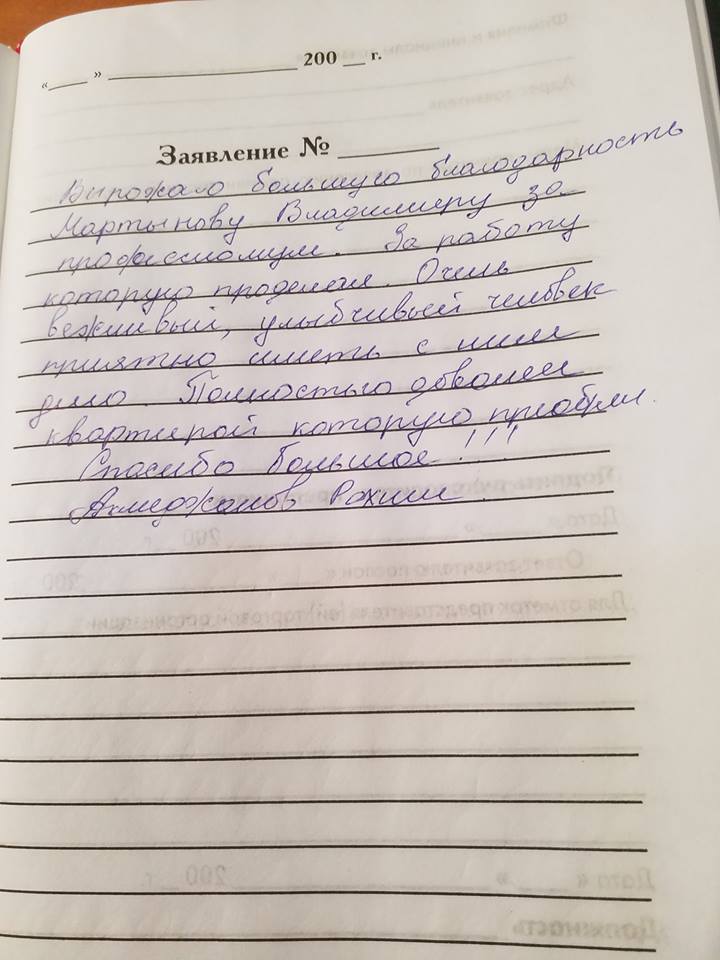 «____ » ____________________ 200 __ г.
Заявление № ________
Выражаю большую благодарность
Мартынову Владимиру за
професионализм. За работу
которую проделал. Очень
вежливый, улыбчивый человек
приятно иметь с ним
дело. Полностью доволен
квартирой которую приобрел.
Спасибо большое !!!
Ахмеджанов Рахим.
Дата « ____ » ____________ 200 _ г.
Должность